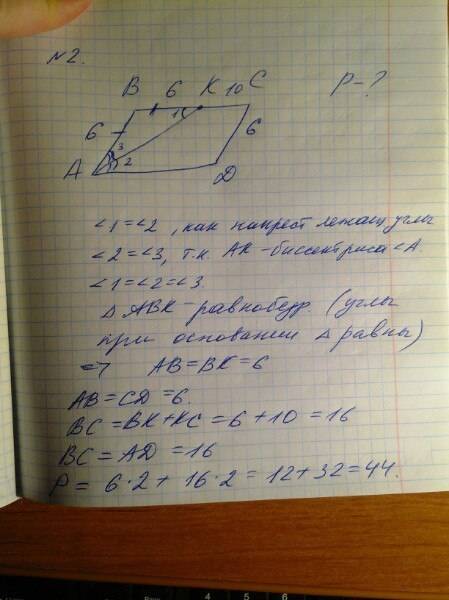 №2.
B 6 K 10 C P-?
6 1 6
3
A 2 D
∠1=∠2, как накрест лежащ углы
∠2=∠3, т.к. AK-биссектриса ∠A
∠1=∠2=∠3
Δ ABK-равнобедр. (углы
при основании Δ равны)
=> AB=BK=6
AB=CD=6.
BC=BK+KC=6+10=16
BC=AD=16
P= 6·2+16·2=12+32=44.
4 5 6